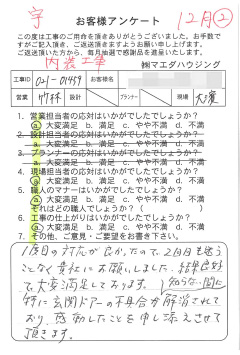 宇
お客様アンケート
12月②
この度は工事のご用命を頂きありがとうございました。お手数で
すがご記入頂き、ご返送頂きますようお願い申し上げます。
ご返送頂いた方から、毎月抽選で感謝品を進呈いたします。
内装工事
㈱マエダハウジング
工事ID 021-01459 お客様名
営業 竹林 設計 プランナー 現場 大濱
1. 営業担当者の対応はいかがでしたでしょうか?
a. 大変満足 b. 満足 c. やや不満 d. 不満
2. 設計担当者の対応はいかがでしたでしょうか?
a. 大変満足 b. 満足 c. やや不満 d. 不満
3. プランナーの対応はいかがでしたでしょうか?
a. 大変満足 b. 満足 c. やや不満 d. 不満
4. 現場担当者の対応はいかがでしたでしょうか?
a. 大変満足 b. 満足 c. やや不満 d. 不満
5. 職人のマナーはいかがでしたでしょうか?
a. 大変満足 b. 満足 c. やや不満 d. 不満
それはどの職人でしょうか? ( )
6. 工事の仕上がりはいかがでしたでしょうか?
a. 大変満足 b. 満足 c. やや不満 d. 不満
7. その他、ご意見・ご要望をお書き下さい。
1度目の対応が良かったので、2回目も迷う
ことなく貴社にお願いしました。結果良好
で大変満足しております。知らない間に
特に玄関ドアーの不具合が解消されて
おり、感動したことを申し添えさせて
頂きます。